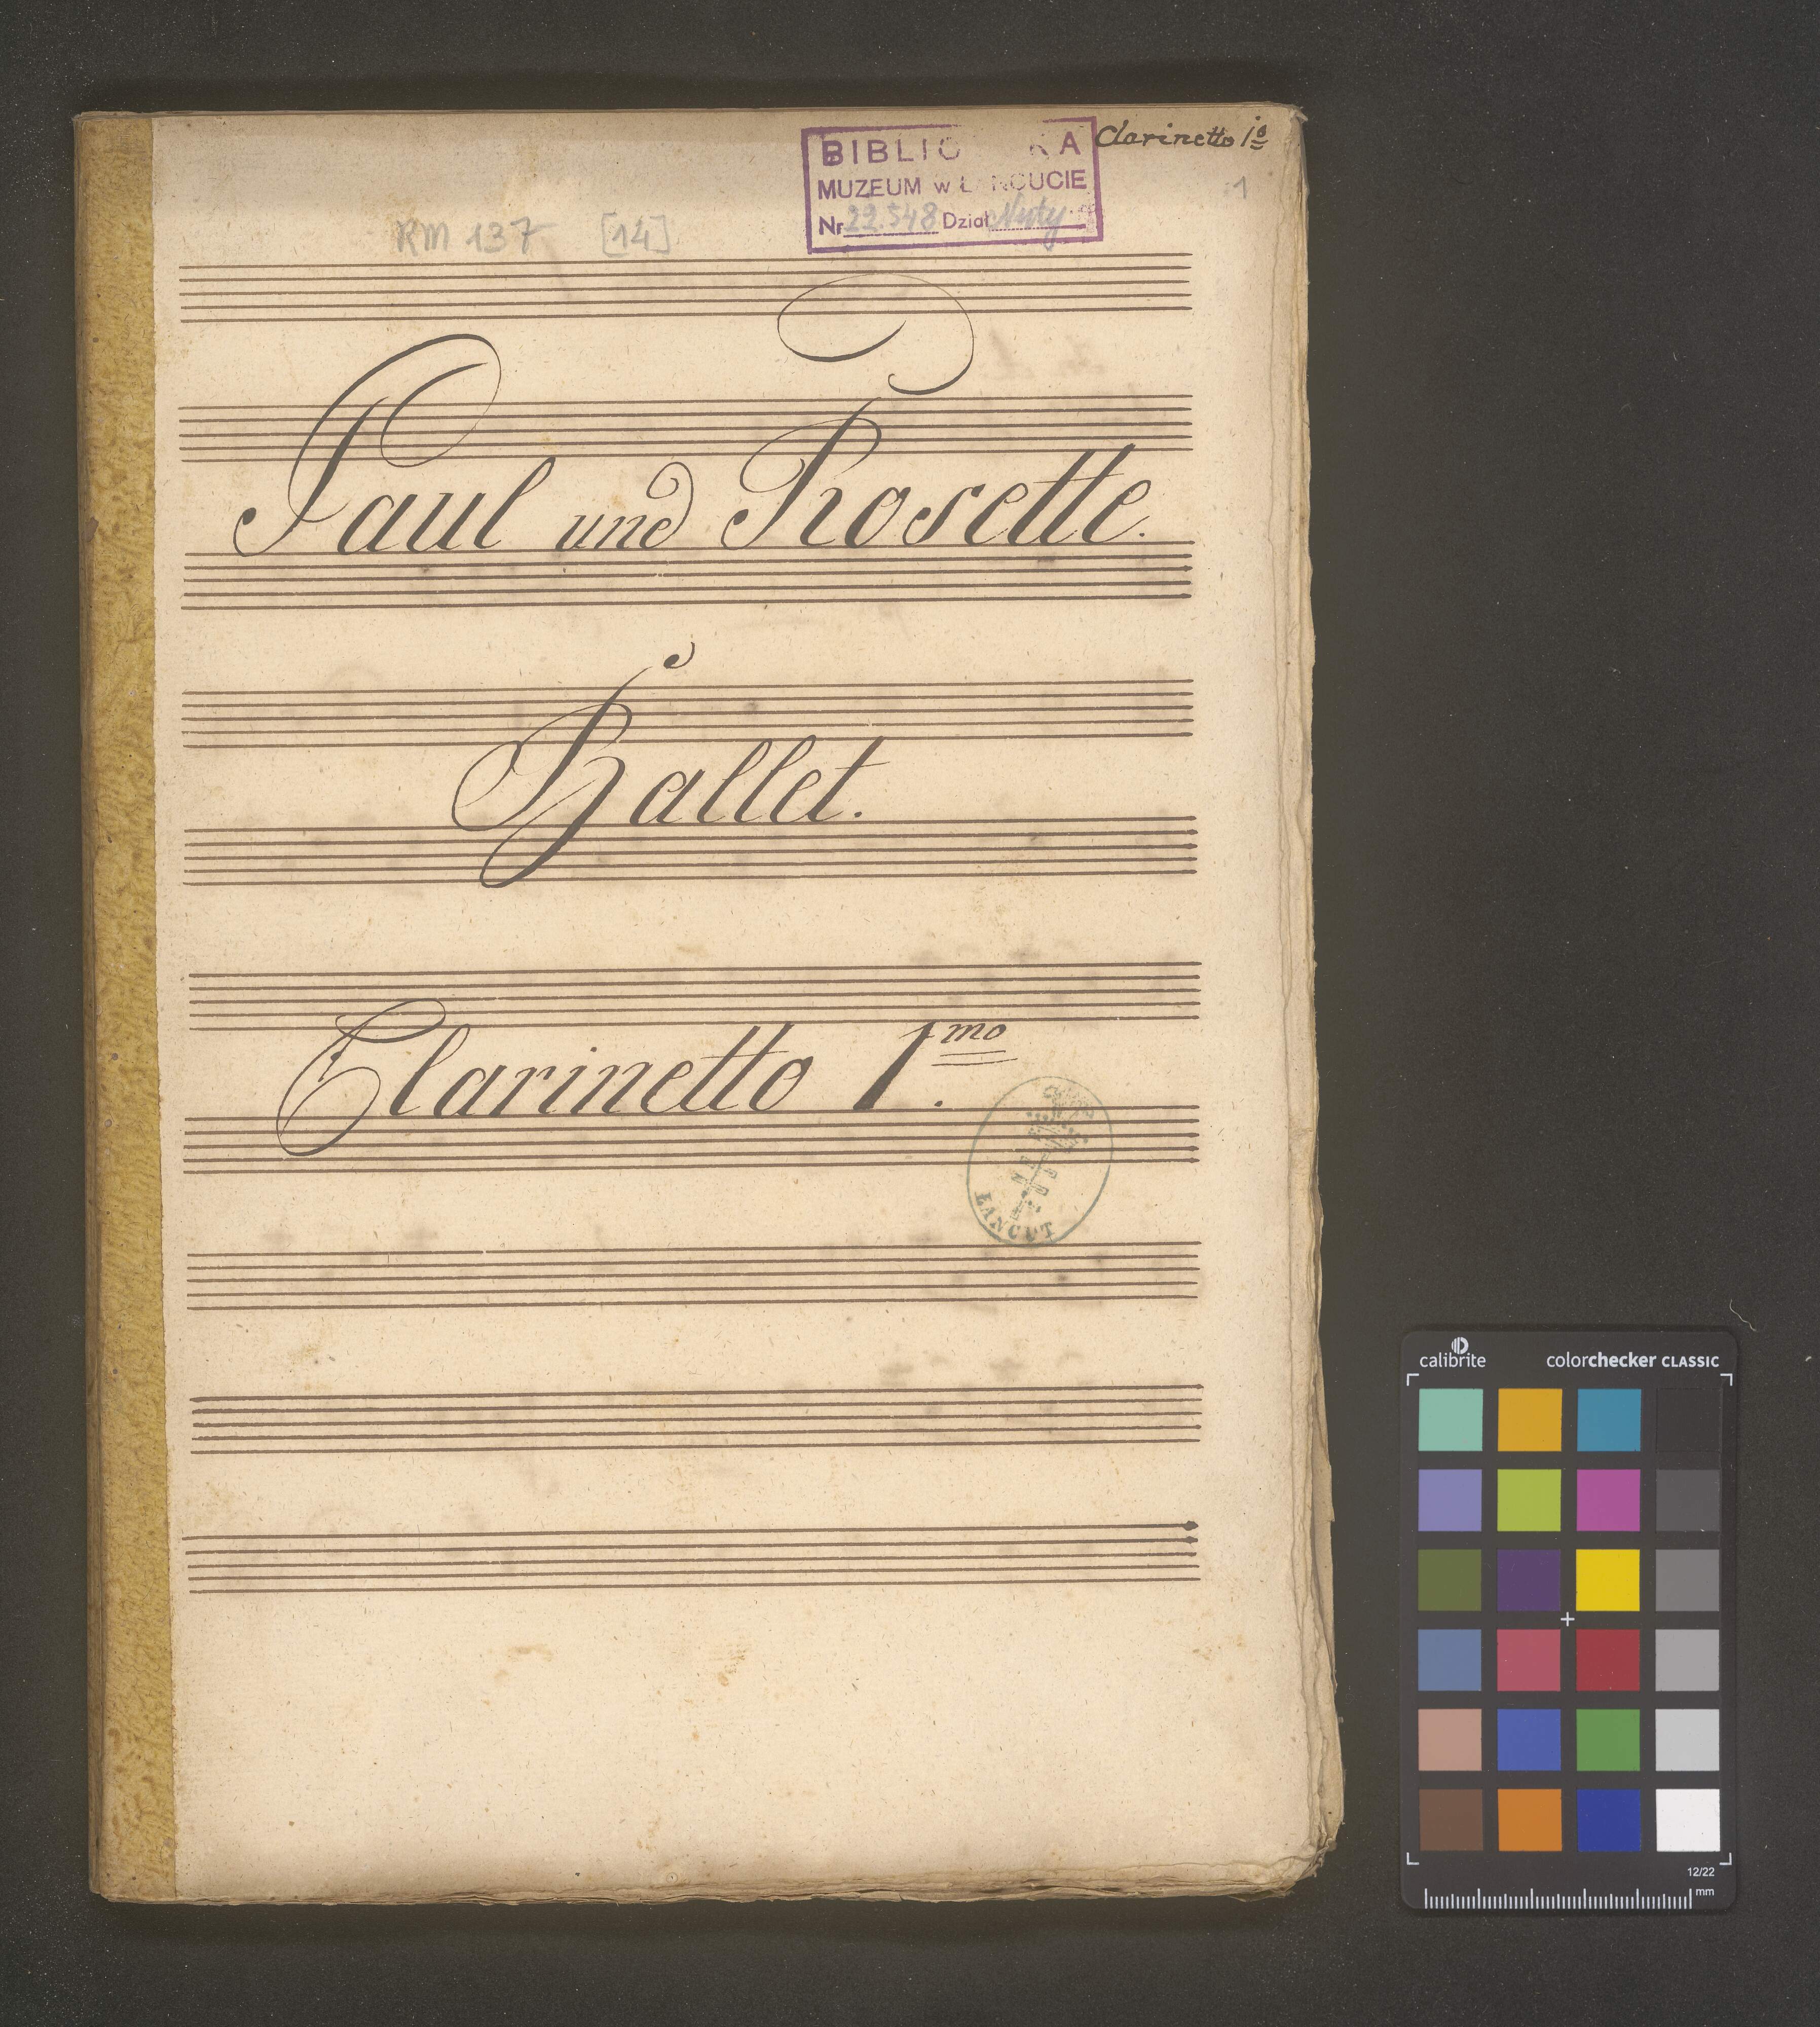 Clarinetto 1º
BIBLIO KA
MUZEUM w ŁAŃCUCIE
Nr 22.548 Dział Nuty
1
RM 137 [14]
Paul und Rosette.
Ballet.
Clarinetto 1.mo
LANCUT
calibrite colorchecker CLASSIC
12/22
mm